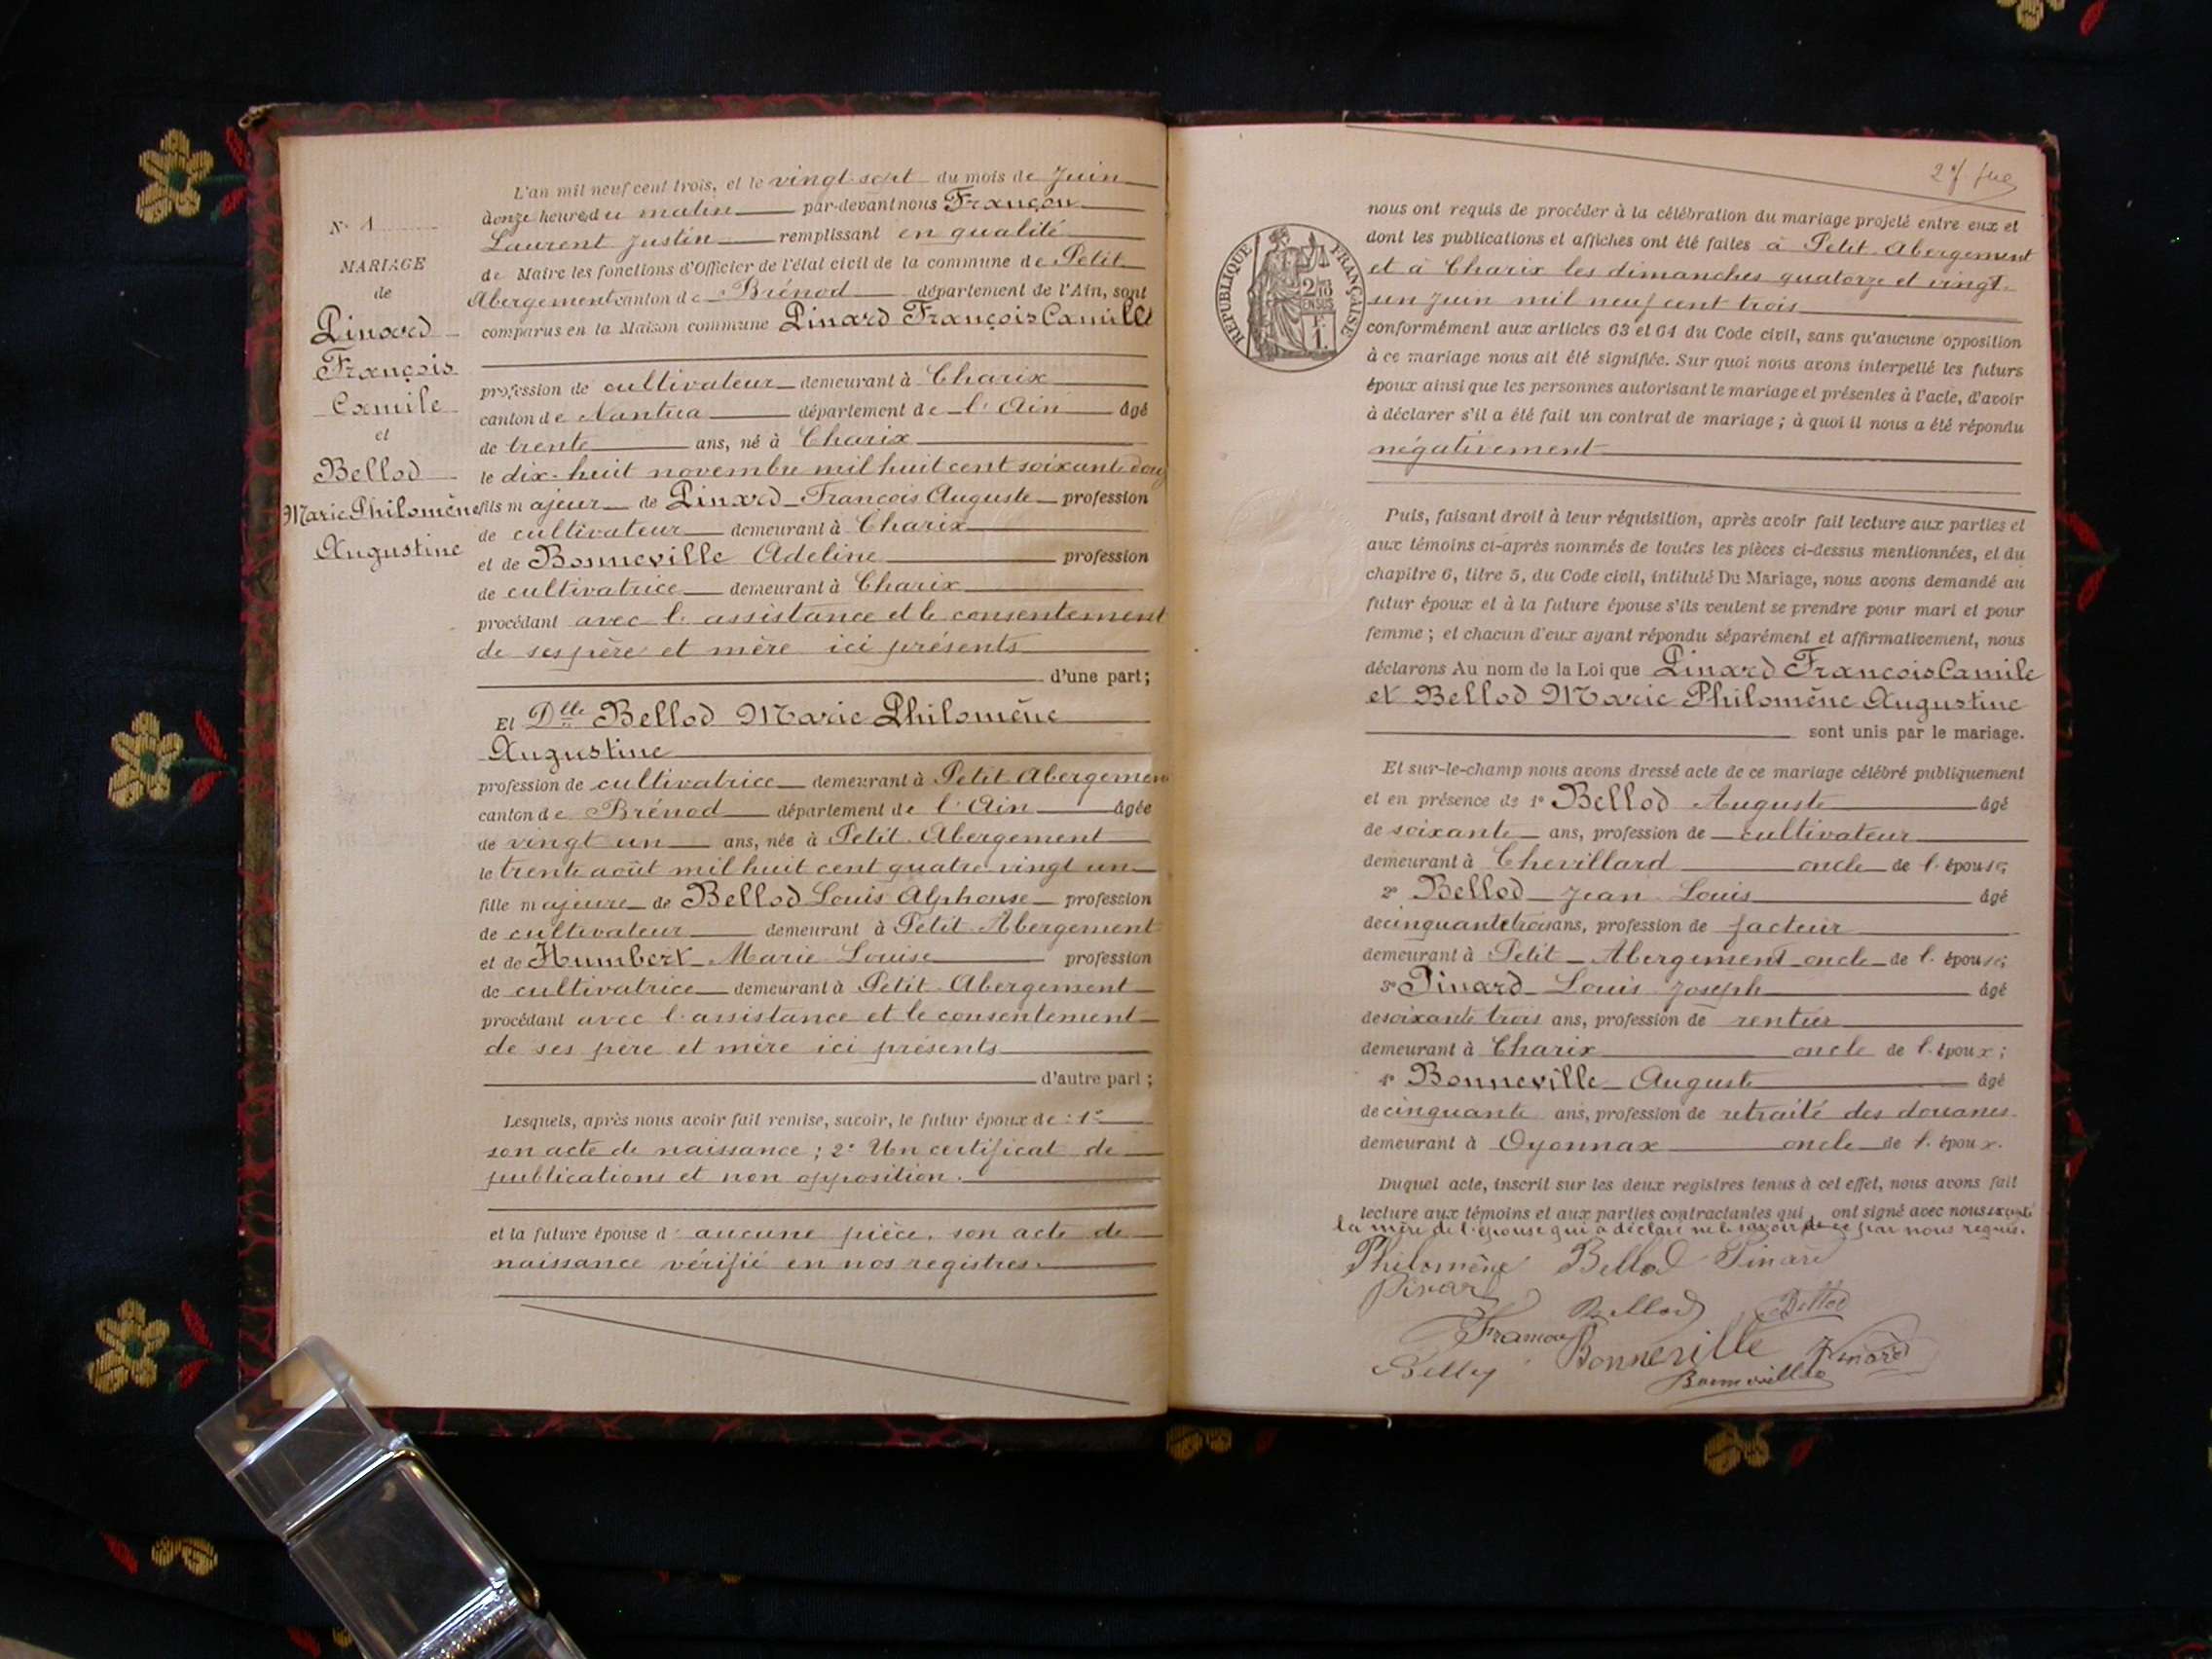 L'an mil neuf cent trois, et le vingt sept du mois de Juin
à onze heures du matin par-devant nous Françon
Laurent Justin remplissant en qualité
de Maire les fonctions d'Officier de l'état civil de la commune de Petit
Abergement canton de Brénod département de l'Ain, sont
comparus en la Maison commune Pinard François Camille
profession de cultivateur demeurant à Charix
canton de Nantua département de l'Ain âgé
de trente ans, né à Charix
le dix-huit novembre mil huit cent soixante douze
fils majeur de Pinard François Auguste profession
de cultivateur demeurant à Charix
et de Bonneville Adeline profession
de cultivatrice demeurant à Charix
procédant avec l'assistance et le consentement
de ses père et mère ici présents
d'une part;
Et Dlle Bellod Marie Philomène
Augustine
profession de cultivatrice demeurant à Petit Abergement
canton de Brénod département de l'Ain âgée
de vingt un ans, née à Petit Abergement
le trente août mil huit cent quatre vingt un
fille majeure de Bellod Louis Alphonse profession
de cultivateur demeurant à Petit Abergement
et de Humbert Marie Louise profession
de cultivatrice demeurant à Petit Abergement
procédant avec l'assistance et le consentement
de ses père et mère ici présents
d'autre part;
Lesquels, après nous avoir fait remise, savoir, le futur époux de : 1°
son acte de naissance ; 2° Un certificat de
publications et non opposition.
et la future épouse d'aucune pièce, son acte de
naissance vérifié en nos registres.
N° 1
MARIAGE
de
Pinard
François
Camile
et
Bellod
Marie Philomène
Augustine
REPUBLIQUE FRANÇAISE
2/10
EN SUS
F.
1.
nous ont requis de procéder à la célébration du mariage projeté entre eux et
dont les publications et affiches ont été faites à Petit Abergement
et à Charix les dimanches quatorze et vingt-
un Juin mil neuf cent trois
conformément aux articles 63 et 64 du Code civil, sans qu'aucune opposition
à ce mariage nous ait été signifiée. Sur quoi nous avons interpellé les futurs
époux ainsi que les personnes autorisant le mariage et présentes à l'acte, d'avoir
à déclarer s'il a été fait un contrat de mariage ; à quoi il nous a été répondu
négativement
Puis, faisant droit à leur réquisition, après avoir fait lecture aux parties et
aux témoins ci-après nommés de toutes les pièces ci-dessus mentionnées, et du
chapitre 6, titre 5, du Code civil, intitulé Du Mariage, nous avons demandé au
futur époux et à la future épouse s'ils veulent se prendre pour mari et pour
femme ; et chacun d'eux ayant répondu séparément et affirmativement, nous
déclarons Au nom de la Loi que Pinard François Camile
et Bellod Marie Philomène Augustine
sont unis par le mariage.
Et sur-le-champ nous avons dressé acte de ce mariage célébré publiquement
et en présence de 1° Bellod Auguste âgé
de soixante ans, profession de cultivateur
demeurant à Chevillard oncle de l'épouse;
2° Bellod Jean Louis âgé
de cinquante trois ans, profession de facteur
demeurant à Petit-Abergement oncle de l'épouse;
3° Pinard Louis Joseph âgé
de soixante trois ans, profession de rentier
demeurant à Charix oncle de l'époux;
4° Bonneville Auguste âgé
de cinquante ans, profession de retraité des douanes
demeurant à Oyonnax oncle de l'époux.
Duquel acte, inscrit sur les deux registres tenus à cet effet, nous avons fait
lecture aux témoins et aux parties contractantes qui ont signé avec nous excepté
la mère de l'épouse qui a déclaré ne le savoir de ce par nous requis.
Philomène Bellod Pinard
Pinard Bellod Bellod
Françon Bonneville Pinard
Bonneville